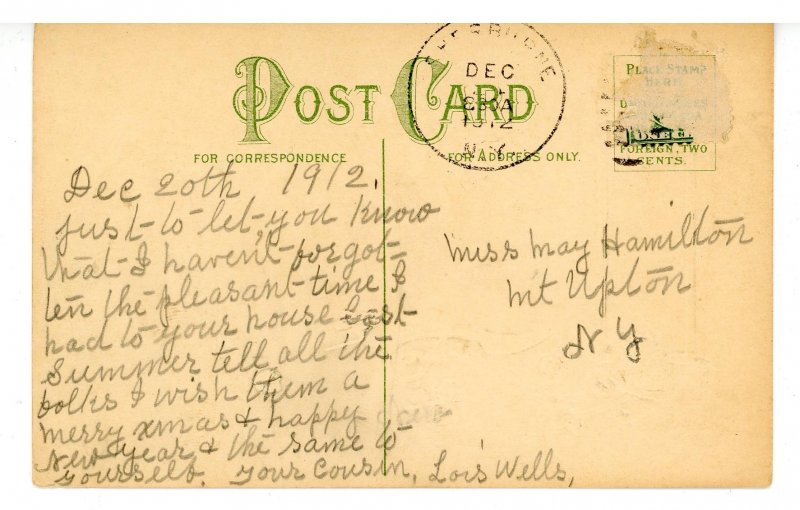 POST CARD
FOR CORRESPONDENCE
FOR ADDRESS ONLY.
DEC
1912
N.Y.
PLACE STAMP
HERE
FOREIGN, TWO
CENTS.
Dec 20th 1912.
just to let you know
that I havent forgot-
ten the pleasant time I
had to your house last
Summer tell all the
folks I wish them a
merry xmas & happy
New Year & the same to
yourself. Your Cousin, Lois Wells,
Miss May Hamilton
Mt Upton
N Y